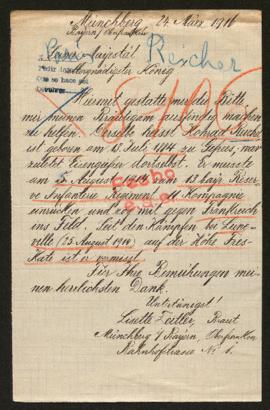 Münchberg 24 März 1916
Bayern/Oberfranken
Reicher
Majestät
König
Hiermit gestatte mir die Bitte
mir meinen Bräutigam ausfindig machen
zu helfen. Derselbe heisst Konrad
ist geboren am 15. Juli 1884 zu
zuletzt Eisengiesser dortselbst. Er musste
am 5. August 1914 zum 13. bair. Reserve
Infanterie Regiment 11 Kompagnie
einrücken und zog mit gegen Frankreich
ins Feld. Seit den Kämpfen bei Lune-
ville (25 August 1914) auf der Höhe
ist er vermisst.
Für Ihre Bemühungen mei-
nen herzlichsten Dank.
Lisette Zeitler, Braut
Münchberg / Bayern, Oberfranken
Bahnhofstrasse No 1.